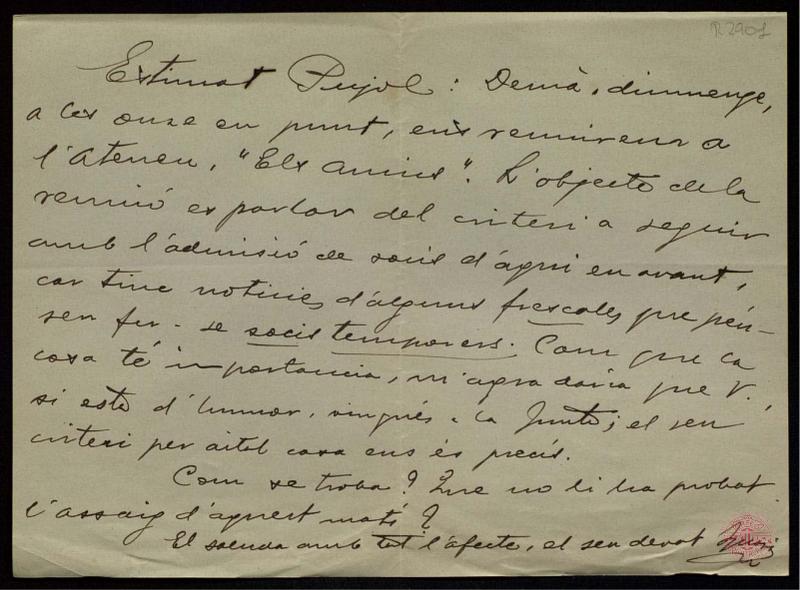 R 2901
Estimat Pujol: Demà, diumenge,
a les onze en punt, ens reunirem a
l'Ateneu, "Els Amics". L'objecte de la
reunió es parlar del criteri a seguir
amb l'admisió de socis d'aqui en avant,
car tinc noticies d'alguns frescales que pén-
sen fer-se socis temporers. Com que la
cosa té importancia, m'agradaria que V.,
si esta d'humor, vingués a la Junta; el seu
criteri per aital cosa ens és precís.
Com se troba? Que no li ha probat
l'assaig d'aquest matí?
El saluda amb tot l'afecte, el seu devot